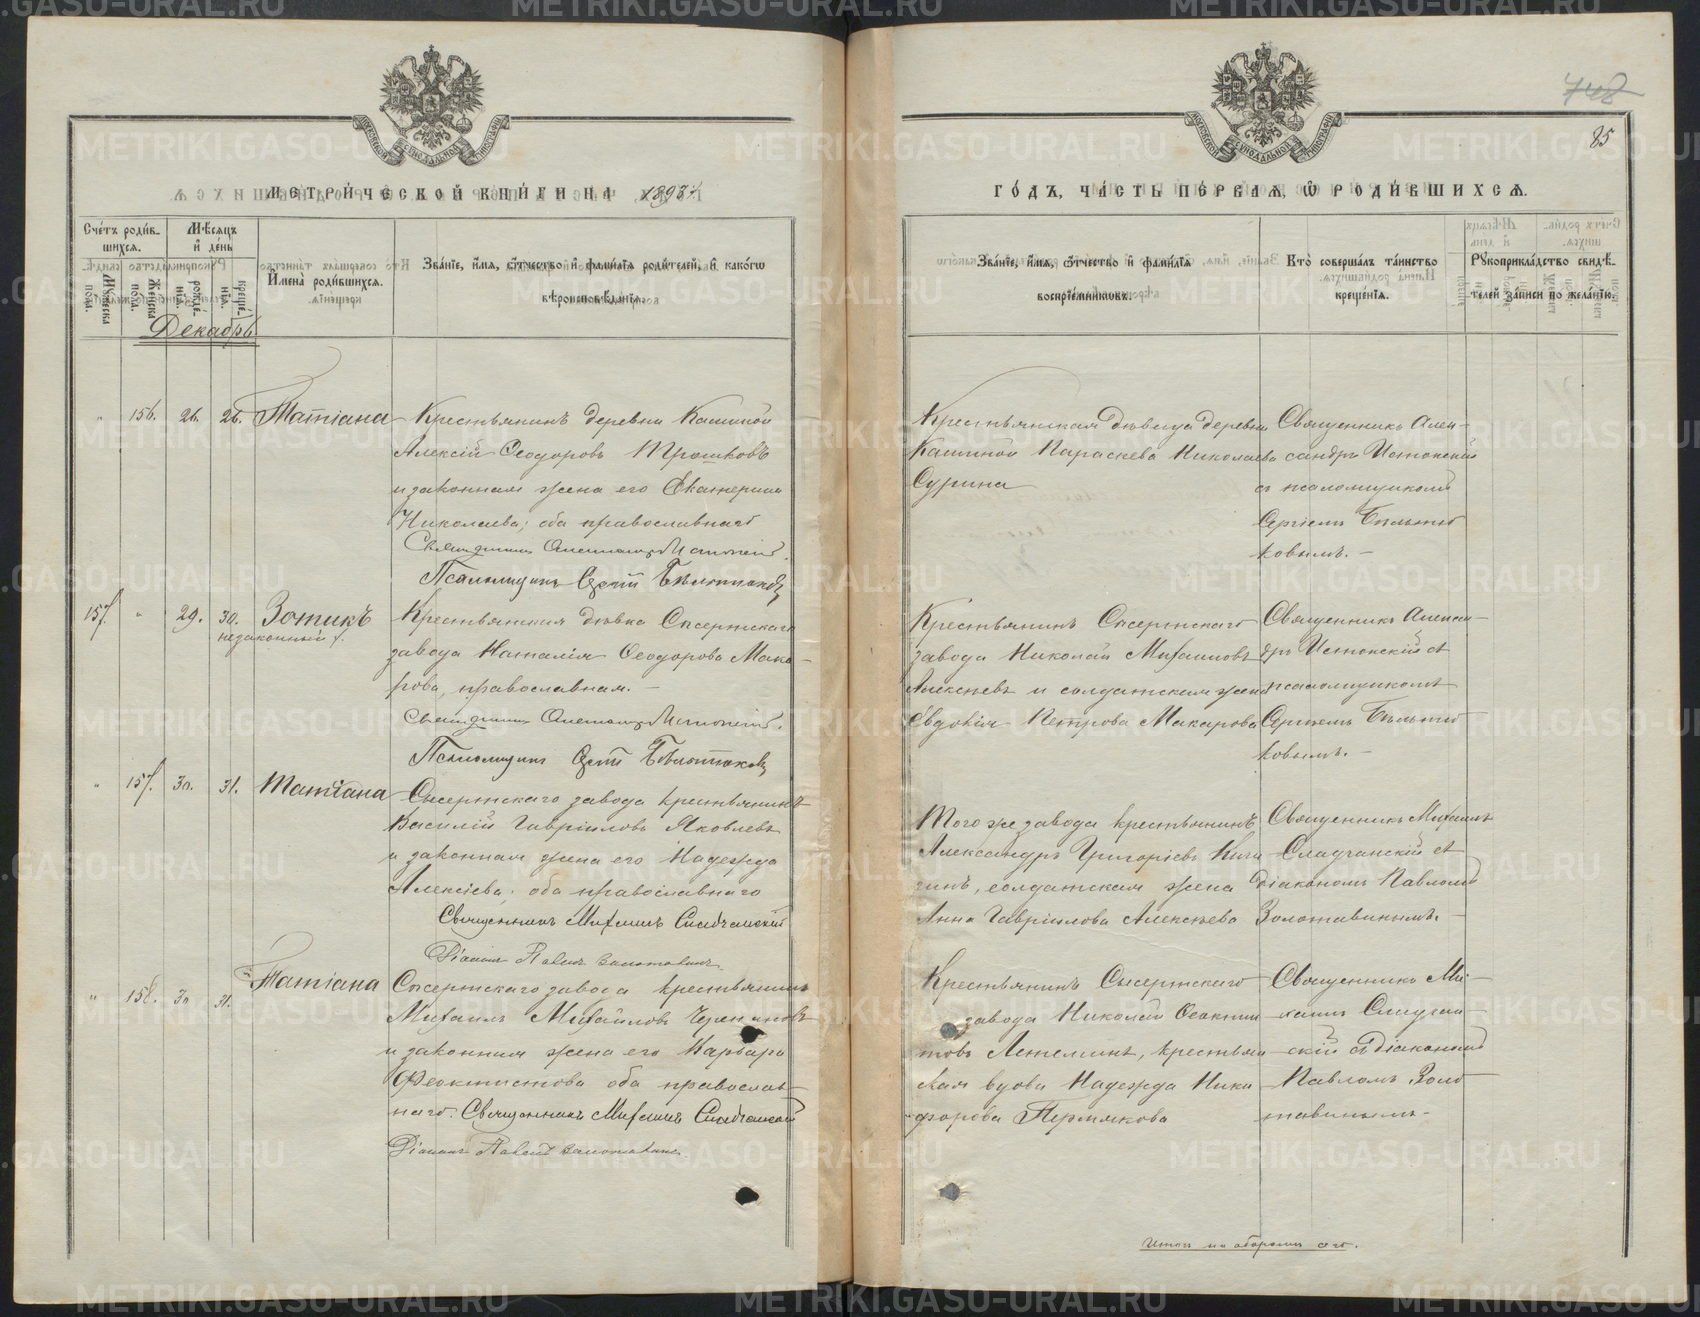 748
85
МЕТРИ́ЧЕСКОЙ КНИ́ГИ НА 1893
ГО́ДЪ, ЧА́СТЬ ПЕ́РВАѦ, Ѡ РОДИ́ВШИХСѦ.
Сче́тъ роди́вшихсѧ.
Мѣ́сѧцъ и де́нь
Мꙋ́жеска по́ла.
Же́нска по́ла.
рожде́нїѧ.
креще́нїѧ.
И҆мена̀ роди́вшихсѧ.
Зва́нїе, и҆́мѧ, ѻ҆́тчество и҆ фами́лїѧ роди́телей, и҆ како́гѡ
вѣроисповѣ́данїѧ.
Зва́нїе, и҆́мѧ, ѻ҆́тчество и҆ фами́лїѧ
воспрїе́мникѡвъ.
Кто̀ соверша́лъ та́инство
креще́нїѧ.
Рꙋкоприкла́дство свидѣ́-
телей за́писи по жела́нїю.
Декабрь
156. 26. 26. Татіана
Крестьянинъ деревни Кашиной
Алексій Ѳеодоровъ Трошковъ
и законная жена его Екатерина
Николаева; оба православнаго
Священникъ Александръ Истокскій.
Псаломщикъ Сергій
Крестьянская дѣвица деревни
Кашиной Параскева Николаева
Сурина
Священникъ Алек-
сандръ Истокскій
съ псаломщикомъ
Сергіемъ
ковымъ.-
157. 29. 30. Зотикъ
незаконный
Крестьянская дѣвка Сысертскаго
завода Наталія Ѳеодорова Мака-
рова, православная.-
Священникъ Александръ Истокскій.
Псаломщикъ Сергій
Крестьянинъ Сысертскаго
завода Николай Михаиловъ
Алексѣевъ и солдатская жена
Евдокія Петрова Макарова
Священникъ Алексан-
дръ Истокскій съ
псаломщикомъ
Сергіемъ
ковымъ.-
157. 30. 31. Татіана
Сысертскаго завода крестьянинъ
Василій Гавріиловъ Яковлевъ
и законная жена его Надежда
Алексіева; оба православнаго
Священникъ Михаилъ Сладчанскій
Діаконъ Павелъ Золотавинъ.
Того же завода крестьянинъ
Александръ Григоріевъ Кичи
гинъ, солдатская жена
Анна Гавріилова Алексѣева
Священникъ Михаилъ
Сладчанскій съ
діакономъ Павломъ
Золотавинымъ.-
158. 30 31. Татіана
Сысертскаго завода крестьянинъ
Михаилъ Михайловъ
и законная жена его Варвара
Феоктистова оба православ-
наго. Священникъ Михаилъ Сладчанскій
Діаконъ Павелъ Золотавинъ.
Крестьянинъ Сысертскаго
завода Николай Ѳеоктис
товъ Летеминъ, крестьян
ская вдова Надежда Ники
форова Пермякова
Священникъ Ми-
хаилъ Сладчан-
скій съ діакономъ
Павломъ Золо-
тавинымъ.-
Итогъ на оборотѣ сего.
METRIKI.GASO-URAL.RU